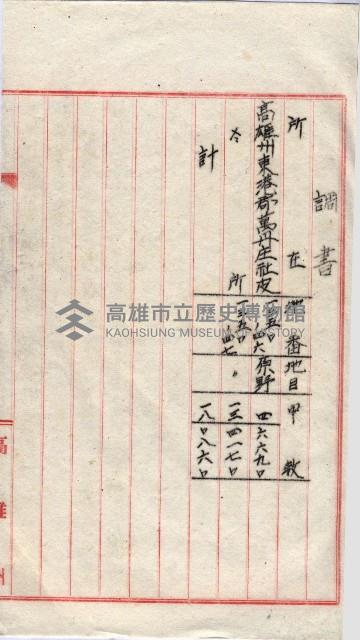 調書
所在 地番 地目 甲数
高雄州東港郡萬丹庄社皮 一五〇ノ四六 原野 四六六九〇
仝 所 一五〇ノ四七 〃 一三四一七〇
計 一八〇八六〇
高雄州
高雄市立歷史博物館
KAOHSIUNG MUSEUM OF HISTORY